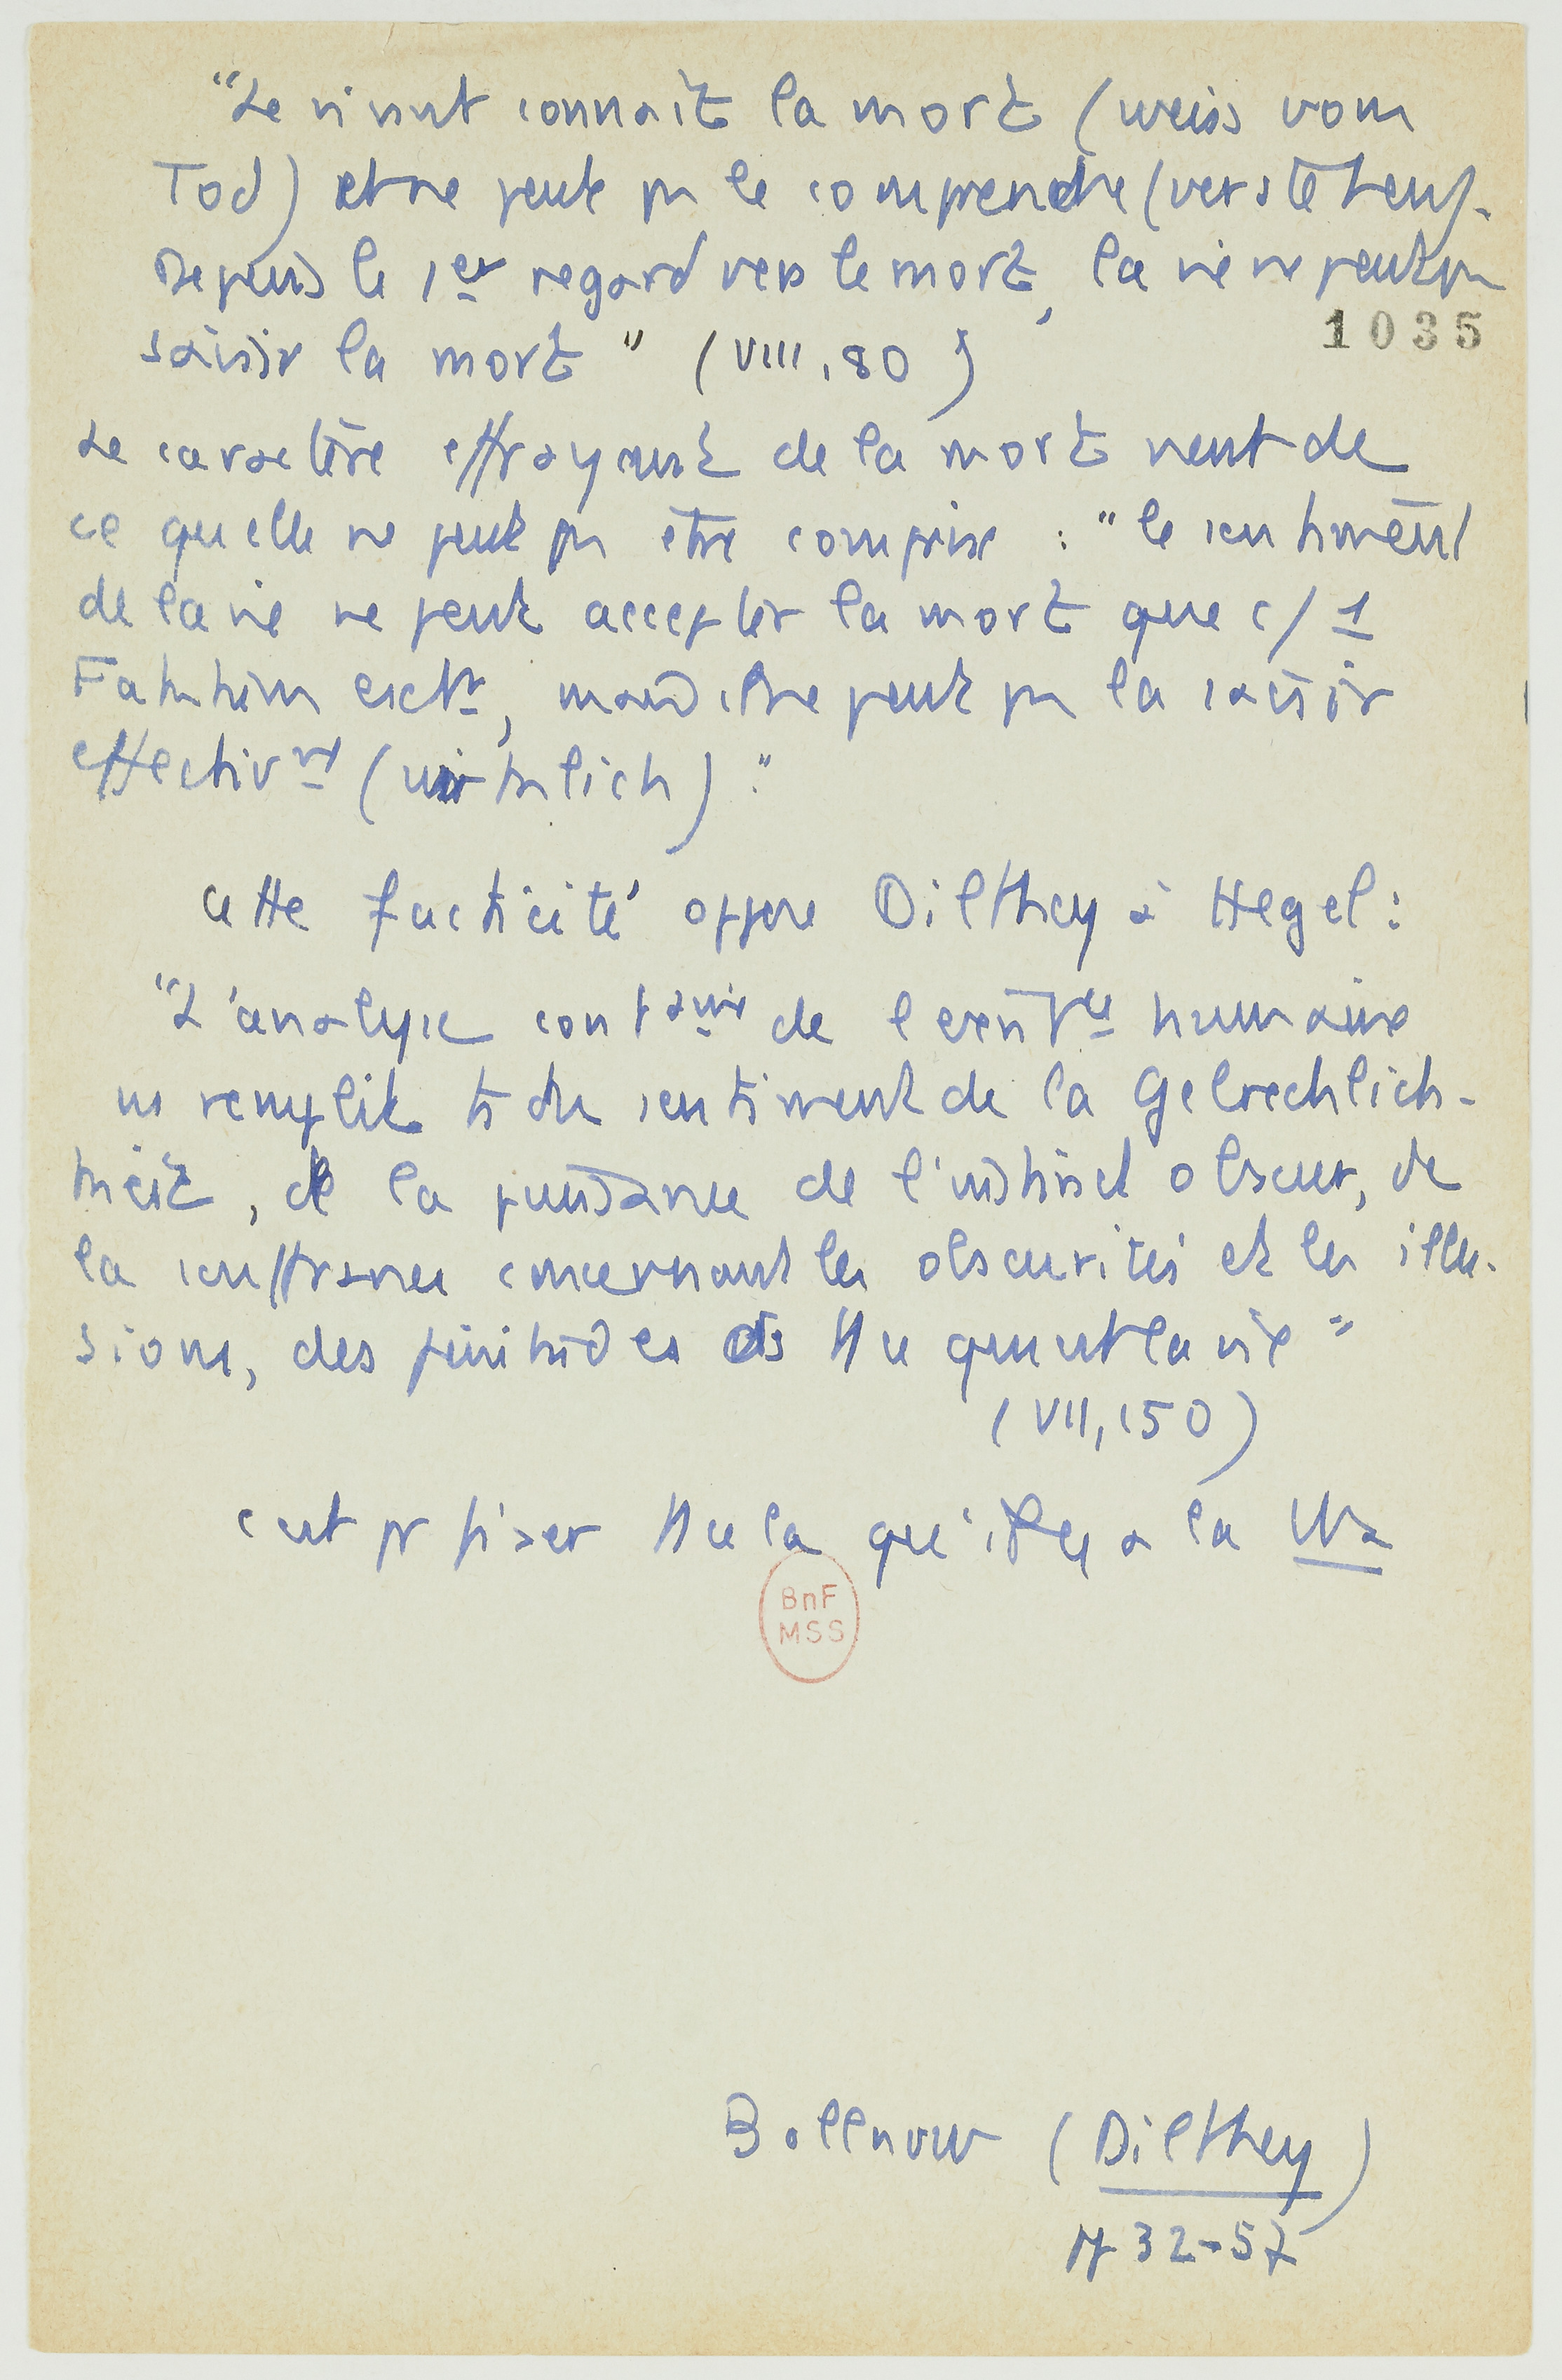 "Le vivant connaît la mort (weiss vom
Tod) et ne peut pas le comprendre (verstehen).
Depuis le 1er regard vers le mort, la vie ne peut pas
1035
saisir la mort" (VIII, 80)
Le caractère effrayant de la mort vient de
ce qu elle ne peut pas être comprise : "le sentiment
de la vie ne peut accepter la mort que c/ 1
Faktum extr, mais il ne peut pas la saisir
effectivnt (wirklich)."
Cette facticité oppose Dilthey à Hegel :
"L'analyse de l existce humaine
ns remplit ts du sentiment de la Gebrechlich-
keit, de la puissance de l'instinct obscur, de
la souffrance concernant les obscurités et les illu-
sions, des finitudes ds tt ce qui est la vie"
(VII, 150)
C est pr fixer tt cela qu'il y a la
BnF
MSS
Bollnow (Dilthey)
pp 32-57